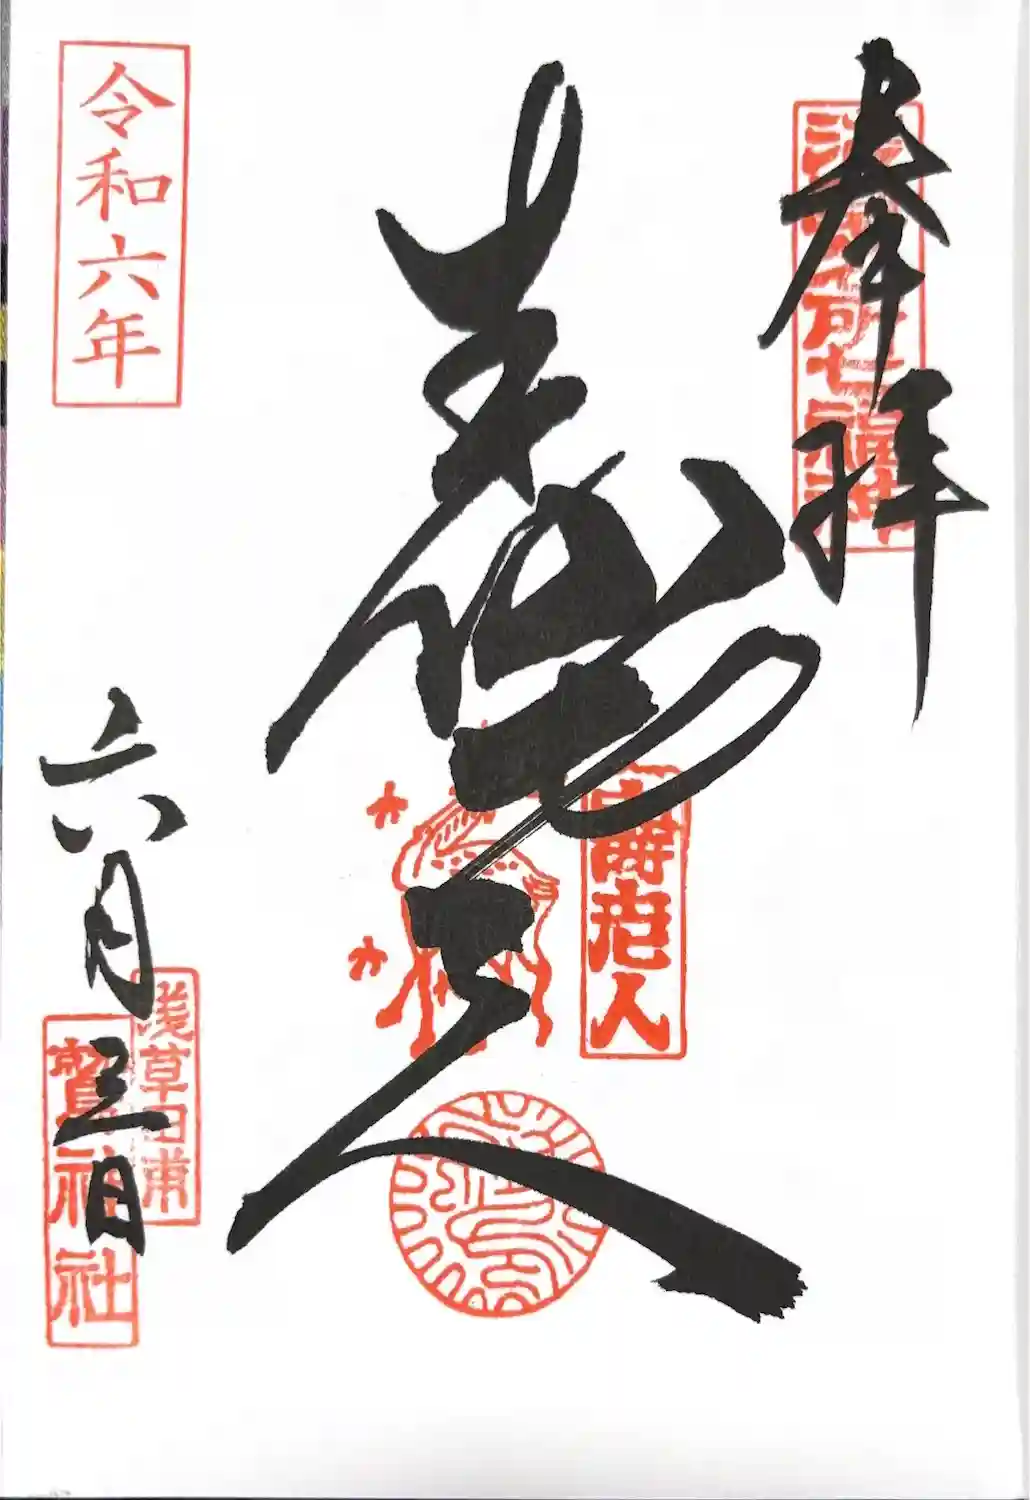 奉拝
浅草名所七福神
壽老人
壽老人
令和六年
六月三日
浅草田甫
鷲神社